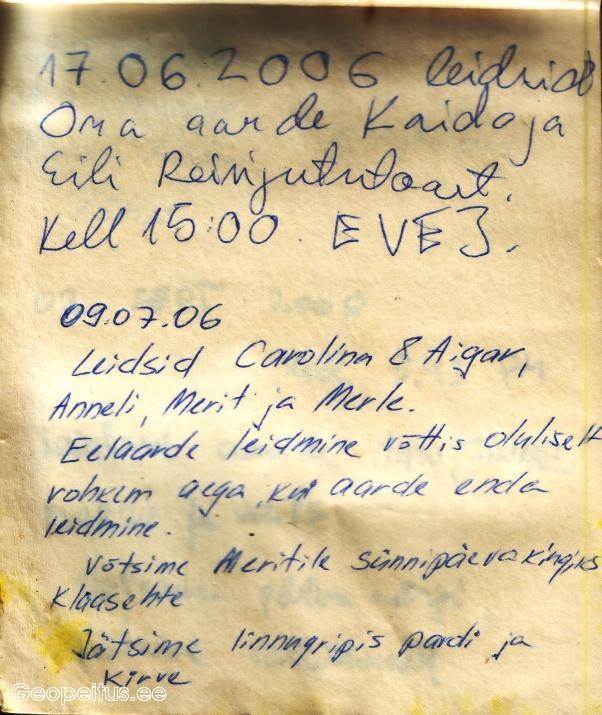 17.06.2006 leidsid
Oma aarde Kaido ja
Eili
Kell 15:00. EVE J.
09.07.06
Leidsid Carolina & Aigar,
Anneli, Merit ja Merle.
Eelaarde leidmine võttis oluliselt
rohkem aega, kui aarde enda
leidmine.
Võtsime Meritile sünnipäevakingiks
klaasehte
Jätsime linnugripis pardi ja
kirve
Geopeitus.ee